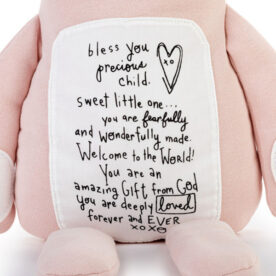 bless you
precious
child.
xo
sweet little one...
you are fearfully
and wonderfully made.
Welcome to the World!
You are an
amazing Gift from God
you are deeply loved
forever and EVER
xoxo